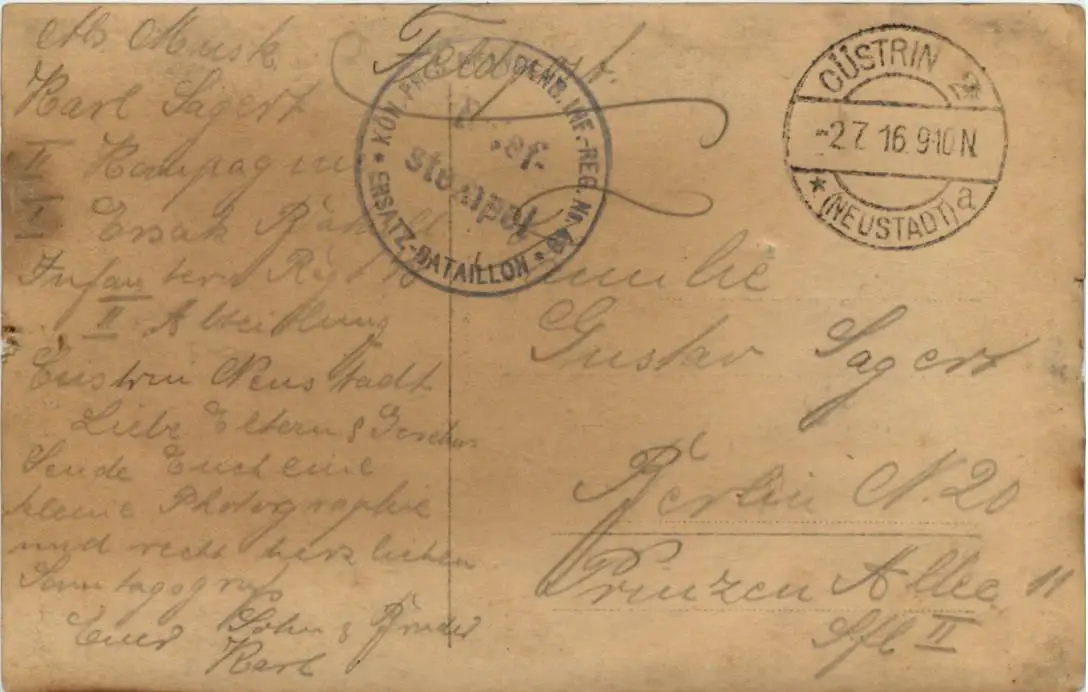 Abs. Musk.
Karl Sagert
II Kompagnie
Ersatz Batail
Infanterie Rigt 48
II Abteilung
Cüstrin Neustadt
Liebe Eltern & Geschw.
Sende Euch eine
kleine Photographie
und recht herzlichen
Sonntagsgruß
Euer Sohn & Bruder
Karl
Feldpost.
KÖN. PR. BRANDENB. INF.-REG. Nr. 48
Brief-
stempel
* ERSATZ-BATAILLON *
CÜSTRIN 2 *
-2.7.16. 9-10 N
* (NEUSTADT) a
Familie
Gustav Sagert
Berlin N. 20
Prinzen Allee 11
Stfl II